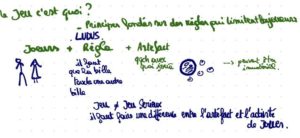 Le Jeu c'est quoi ?
- Principes fondés sur des règles qui limitent les joueurs
LUDUS.
Joeurs + Règle + Artefact
il faut que la bille touche une autre bille
qqch avec quoi jouer
→ peuvent être
Jeu ≠ Jeu sérieux
il faut faire une différence entre l'artefact et l'activité de jouer.